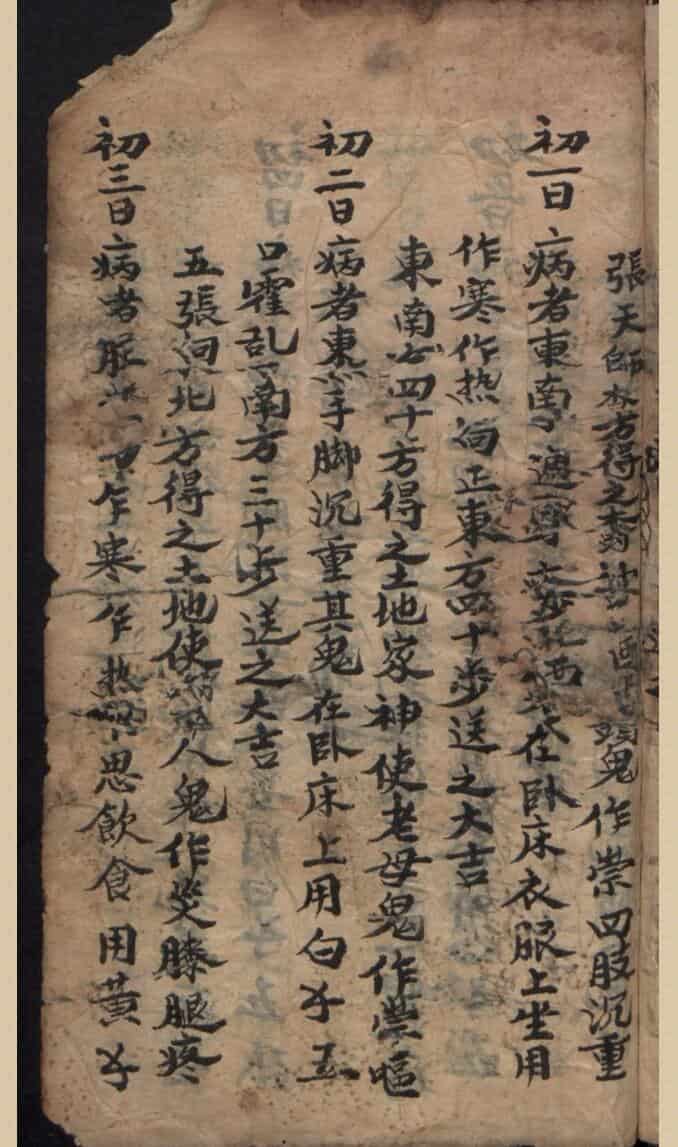 張天師方得之鬼作祟四肢沉重
初一日病者東南在卧床衣服上坐用
作寒作热向正東方四十步送之大吉
東南四十方得之土地家神使老母鬼作祟嘔
初二日病者東手脚沉重其鬼在卧床上用白才五
口霍乱南方三十步送之大吉
五張向北方得之土地使人鬼作災膝腿疼
初三日病者乍寒乍热思飲食用黄才